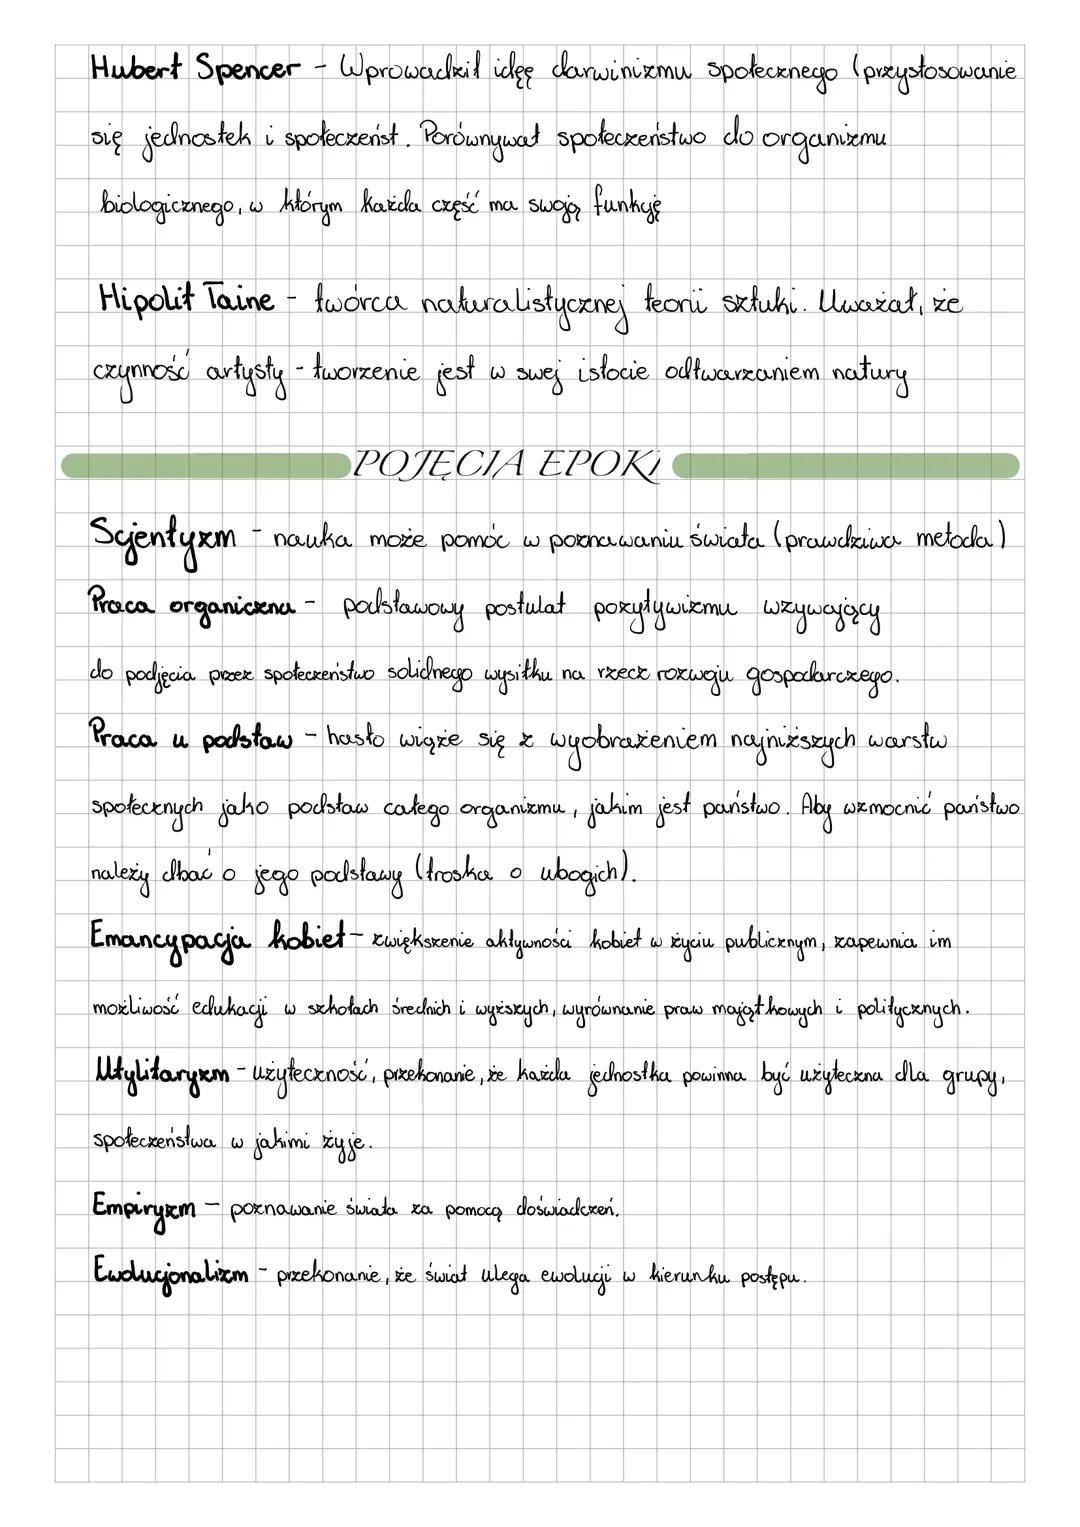 Hubert Spencer - Wprowadził idęę darwinizmu społecznego (przystosowanie
się jednostek i społeczeńst. Porównywał społeczeństwo do organizmu
biologicznego, w którym każda część ma swoją funkcję
Hipolit Taine - twórca naturalistycznej teorii sztuki. Uważał, że
czynność artysty - tworzenie jest w swej istocie odtwarzaniem natury
POJĘCIA EPOKI
Scjentyzm - nauka może pomóc w poznawaniu świata (prawdziwa metoda)
Praca organiczna - podstawowy postulat pozytywizmu wzywający
do podjęcia przez społeczeństwo solidnego wysiłku na rzecz rozwoju gospodarczego.
Praca u podstaw - hasło wiąże się z wyobrażeniem najniższych warstw
społecznych jako podstaw całego organizmu, jakim jest państwo. Aby wzmocnić państwo
należy dbać o jego podstawy (troska o ubogich).
Emancypacja kobiet - zwiększenie aktywności kobiet w życiu publicznym, zapewnia im
możliwość edukacji w szkołach średnich i wyższych, wyrównanie praw majątkowych i politycznych.
Utylitaryzm - użyteczność, przekonanie, że każda jednostka powinna być użyteczna dla grupy,
społeczeństwa w jakimi żyje.
Empiryzm - poznawanie świata za pomocą doświadczeń.
Ewolucjonalizm - przekonanie, że świat ulega ewolucji w kierunku postępu.